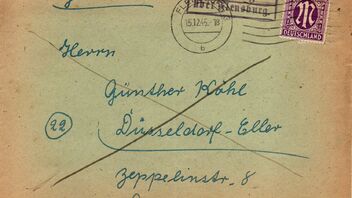 über Flensburg.
15.12.45.-18
b
M
DEUTSCHLAND
Herrn
Günther Köhl
(22) Düsseldorf-Eller
Zeppelinstr. 8